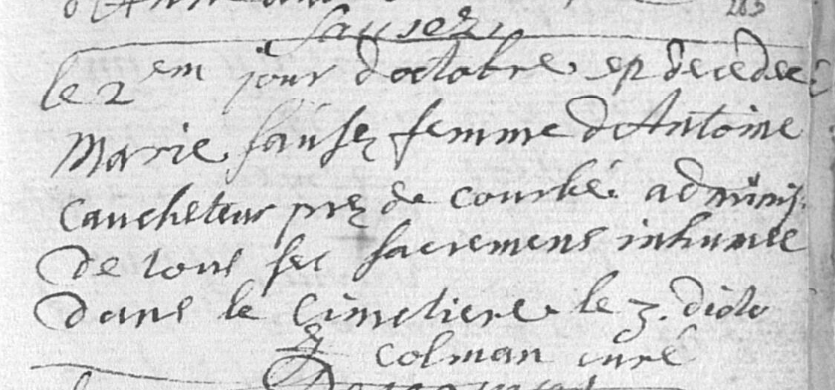 le 2em jour doctobre est decedee
Marie sausez femme d'Antoine
caucheteur prez de courbé adminis.
de tous ses sacremens inhumée
dans le cimetiere le 3. dicto
colman curé